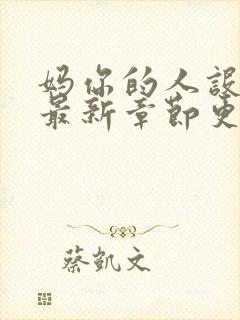 妈你的人設
最新章節更
蔡凱文